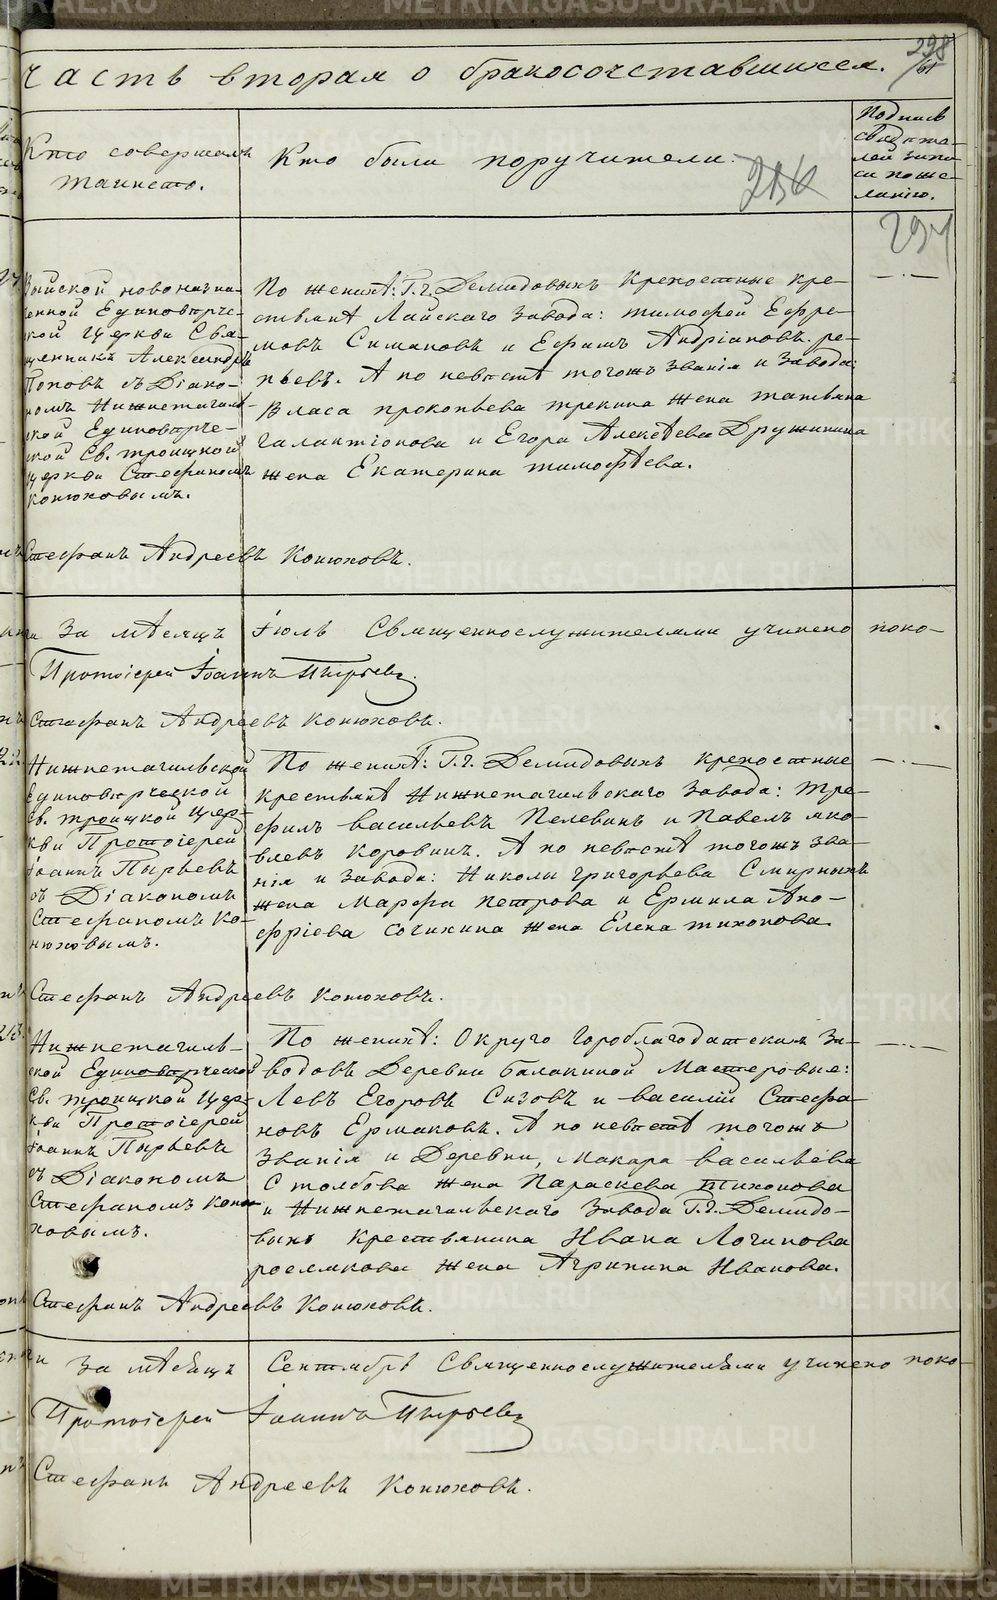 METRIKI.GASO-URAL.RU
Часть вторая о бракосочетавшихся.
298
Кто совершалъ
таинство.
Кто были поручители.
Подпись
свидѣте-
лей запи-
си по же-
ланію.
294
Выйской новоназна-
ченной Единовѣрче-
ской Церкви Свя-
щенникъ Александръ
Поповъ съ Діако-
номъ Нижнетагиль-
ской Единовѣрче-
ской Св. Троицкой
Церкви Стефаномъ
Конюховымъ.
По женихѣ: Г.г. Демидовыхъ Крепостные кре-
стьянѣ Лайскаго Завода: Тимофей Ефре-
мовъ Симановъ и Ефимъ Андріановъ ре-
пьевъ. А по невѣстѣ тогожъ званія и Завода:
Власа прокопьева трекина жена татьяна
Галактіонова и Егора Алексѣева Дружинина
жена Екатерина тимофѣева.
Стефанъ Андреевъ Конюховъ.
За мѣсяцъ Іюль Священнослужителями учинено поко-
Протоіерей Іоаннъ Пырьевъ.
Стефанъ Андреевъ Конюховъ.
22
Нижнетагильской
Единовѣрческой
Св. троицкой Цер-
кви Протоіерей
Іоаннъ Пырьевъ
съ Діакономъ
Стефаномъ Ко-
нюховымъ.
По женихѣ: Г.г. Демидовыхъ крепостные
крестьянѣ Нижнетагильскаго Завода: Тре-
филъ васильевъ Пелевинъ и Павелъ яко-
влевъ Коровинъ. А по невѣстѣ тогожъ зва-
нія и Завода: Николы григорьева Смирныхъ
жена Марфа петрова и Ермила Ано-
фріева Согикина жена Елена тихонова.
Стефанъ Андреевъ Конюховъ.
23.
Нижнетагиль-
ской Единовѣрческой
Св. троицкой Цер-
кви Протоіерей
Іоаннъ Пырьевъ
съ Діакономъ
Стефаномъ Коню-
ховымъ.
По женихѣ: Округо Гороблагодатскихъ За-
водовъ Деревни Балакиной Мастеровые:
Левъ Егоровъ Сизовъ и василій Стефа-
новъ Ермаковъ. А по невѣстѣ тогожъ
званія и Деревни, Макара васильева
Столбова жена Параскева Тихонова
и Нижнетагильскаго Завода Г.г. Демидо-
выхъ Крестьянина Ивана Логинова
росляkова жена Агрипина Иванова.
Стефанъ Андреевъ Конюховъ.
За мѣсяцъ Сентябрь Священнослужителями учинено поко-
Протоіерей Іоаннъ Пырьевъ
Стефанъ Андреевъ Конюховъ.